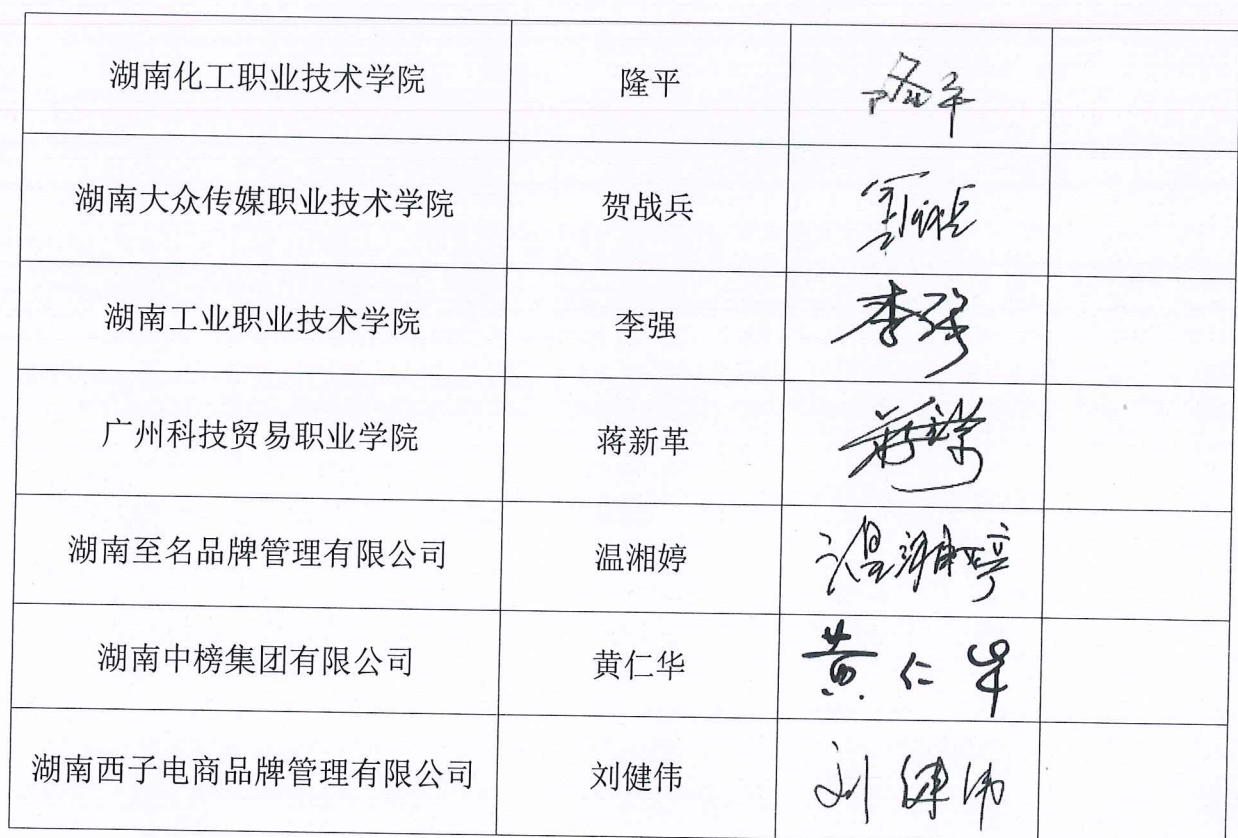 湖南化工职业技术学院 隆平 隆平
湖南大众传媒职业技术学院 贺战兵
湖南工业职业技术学院 李强 李强
广州科技贸易职业学院 蒋新革 蒋新革
湖南至名品牌管理有限公司 温湘婷 温湘婷
湖南中榜集团有限公司 黄仁华 黄仁华
湖南西子电商品牌管理有限公司 刘健伟 刘健伟